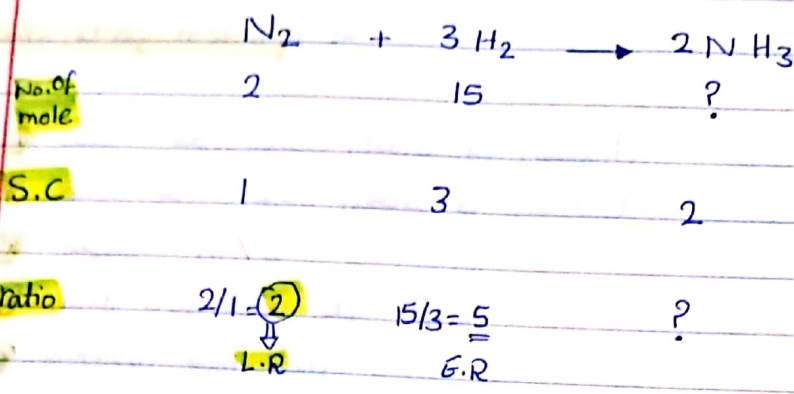 N2 + 3 H2 → 2 N H3
No. Of mole 2 15 ?
S.C 1 3 2
ratio 2/1 = 2 15/3 = 5 ?
L.R E.R